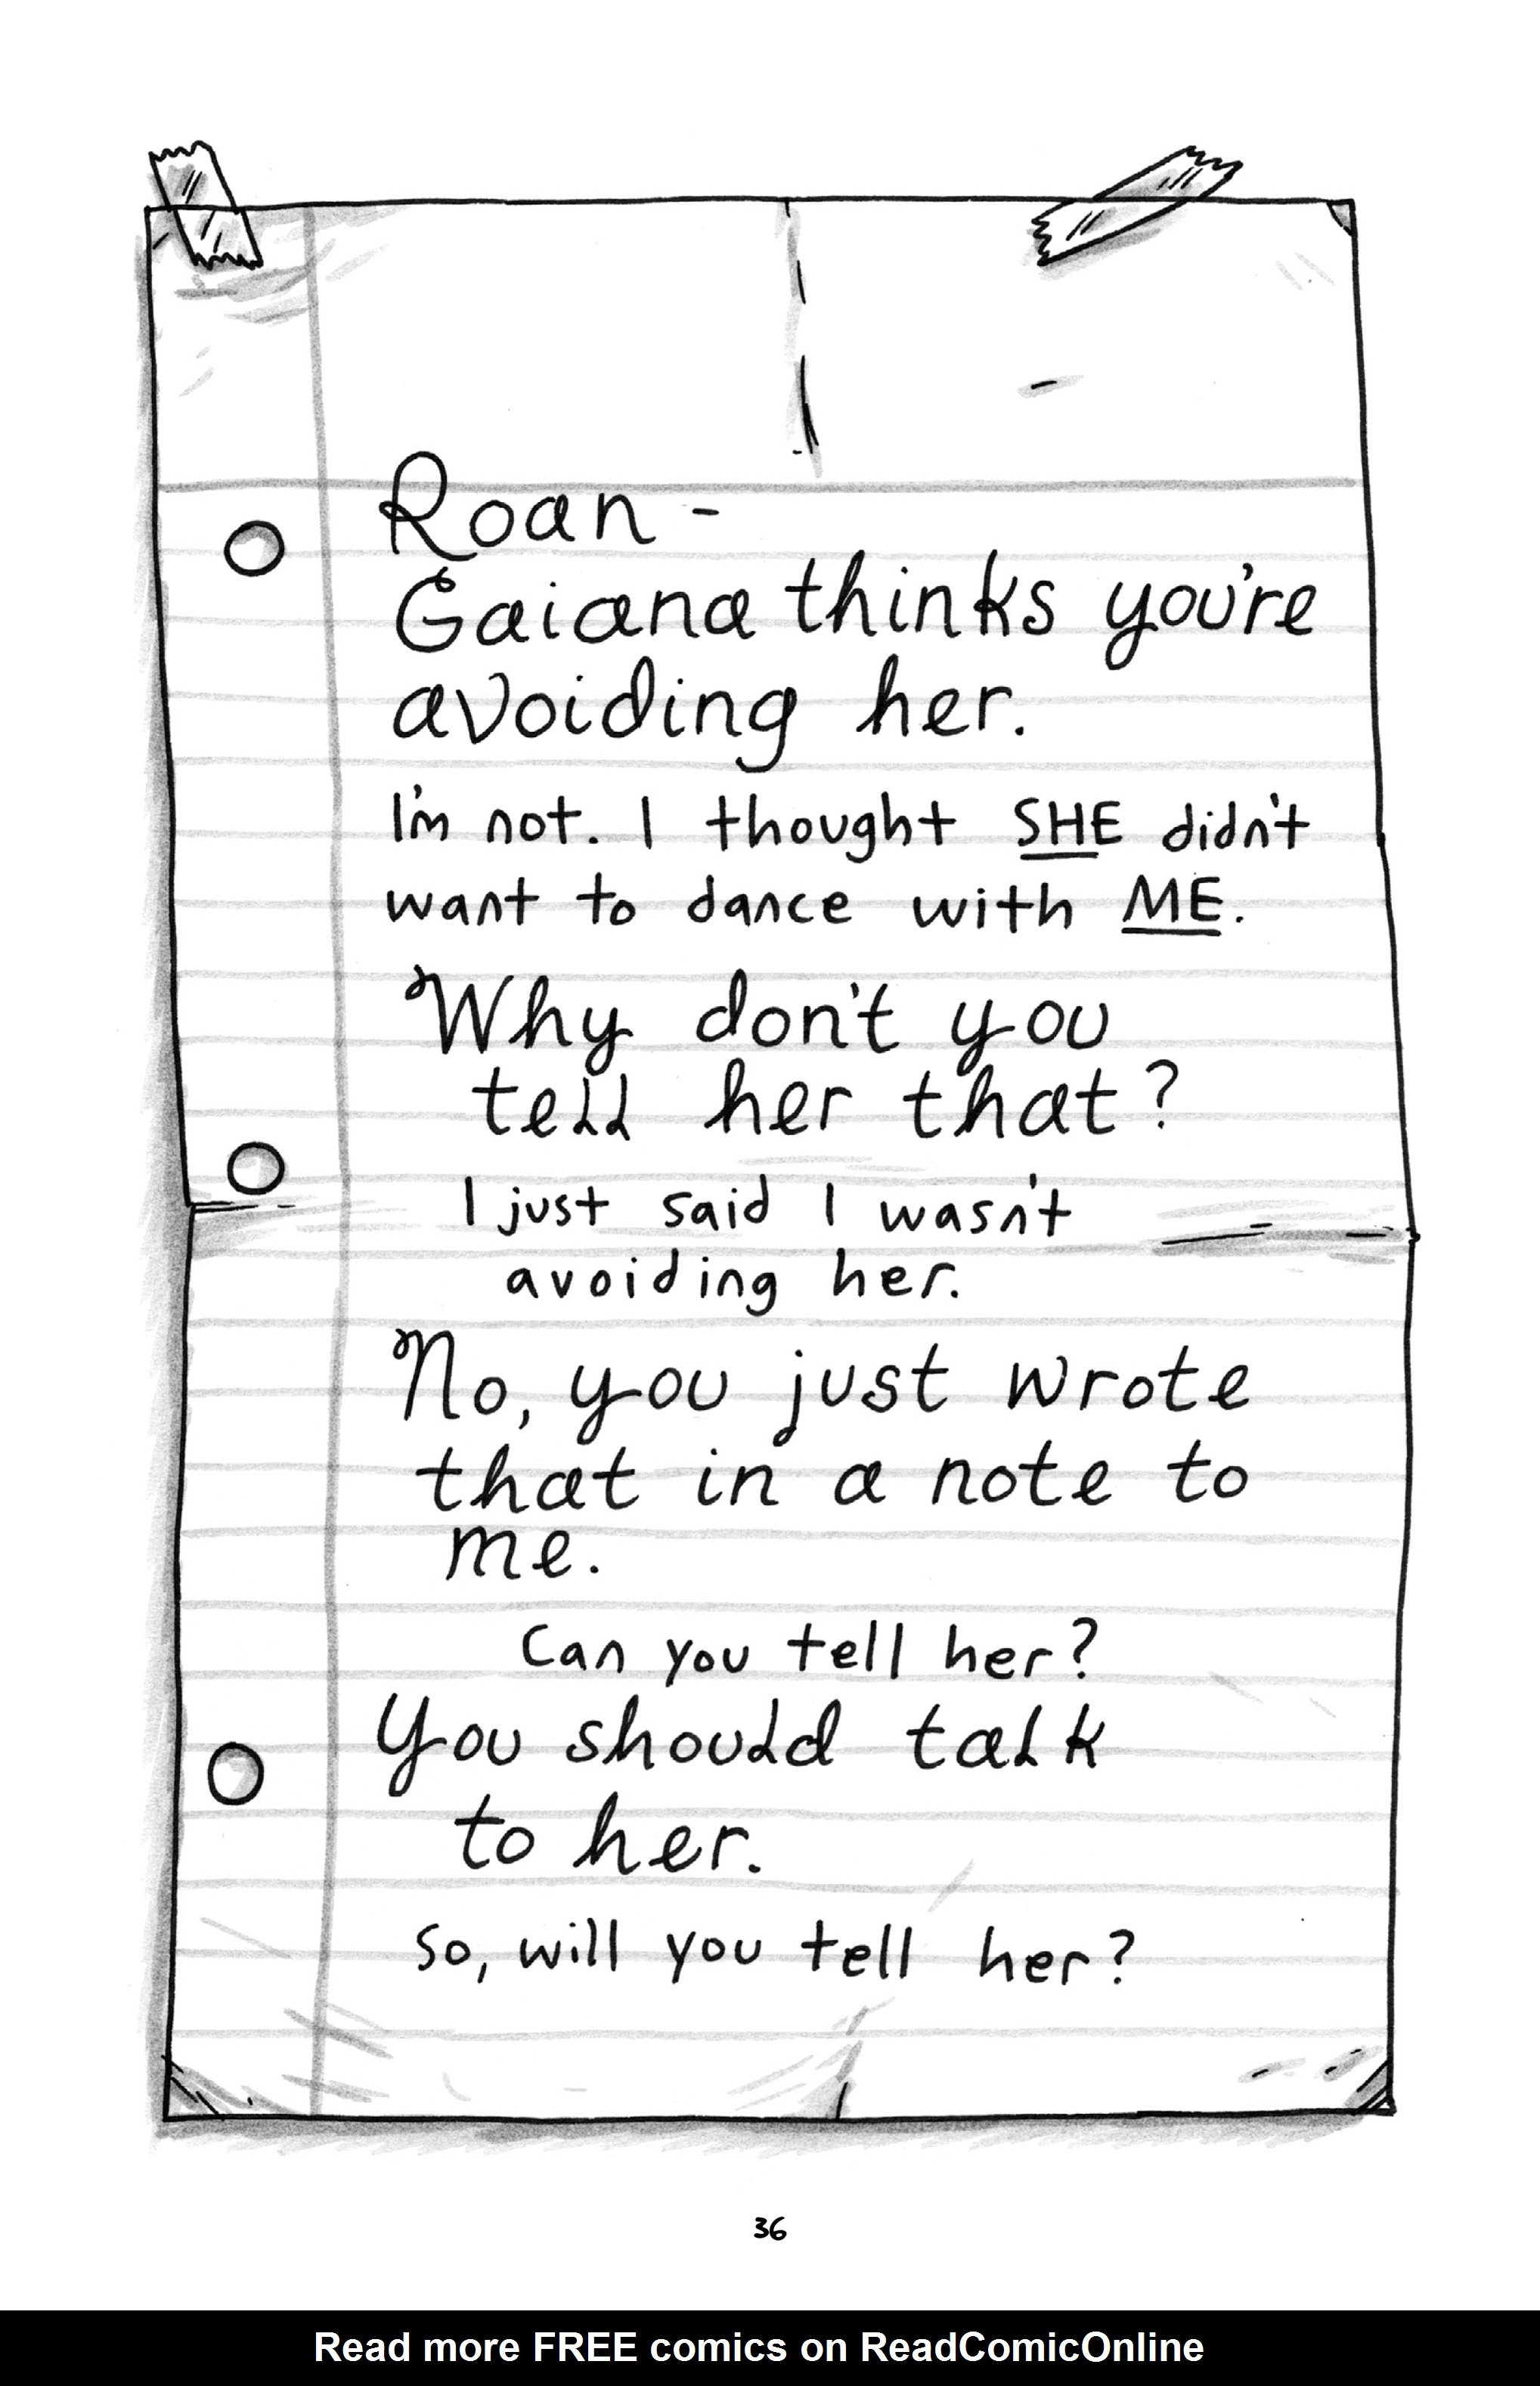 Roan -
Gaiana thinks you're
avoiding her.
I'm not. I thought SHE didn't
want to dance with ME.
Why don't you
tell her that?
I just said I wasn't
avoiding her.
No, you just wrote
that in a note to
me.
Can you tell her?
You should talk
to her.
So, will you tell her?
36
Read more FREE comics on ReadComicOnline